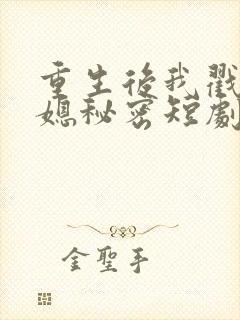 重生後我戳
媳秘密短劇
金聖手